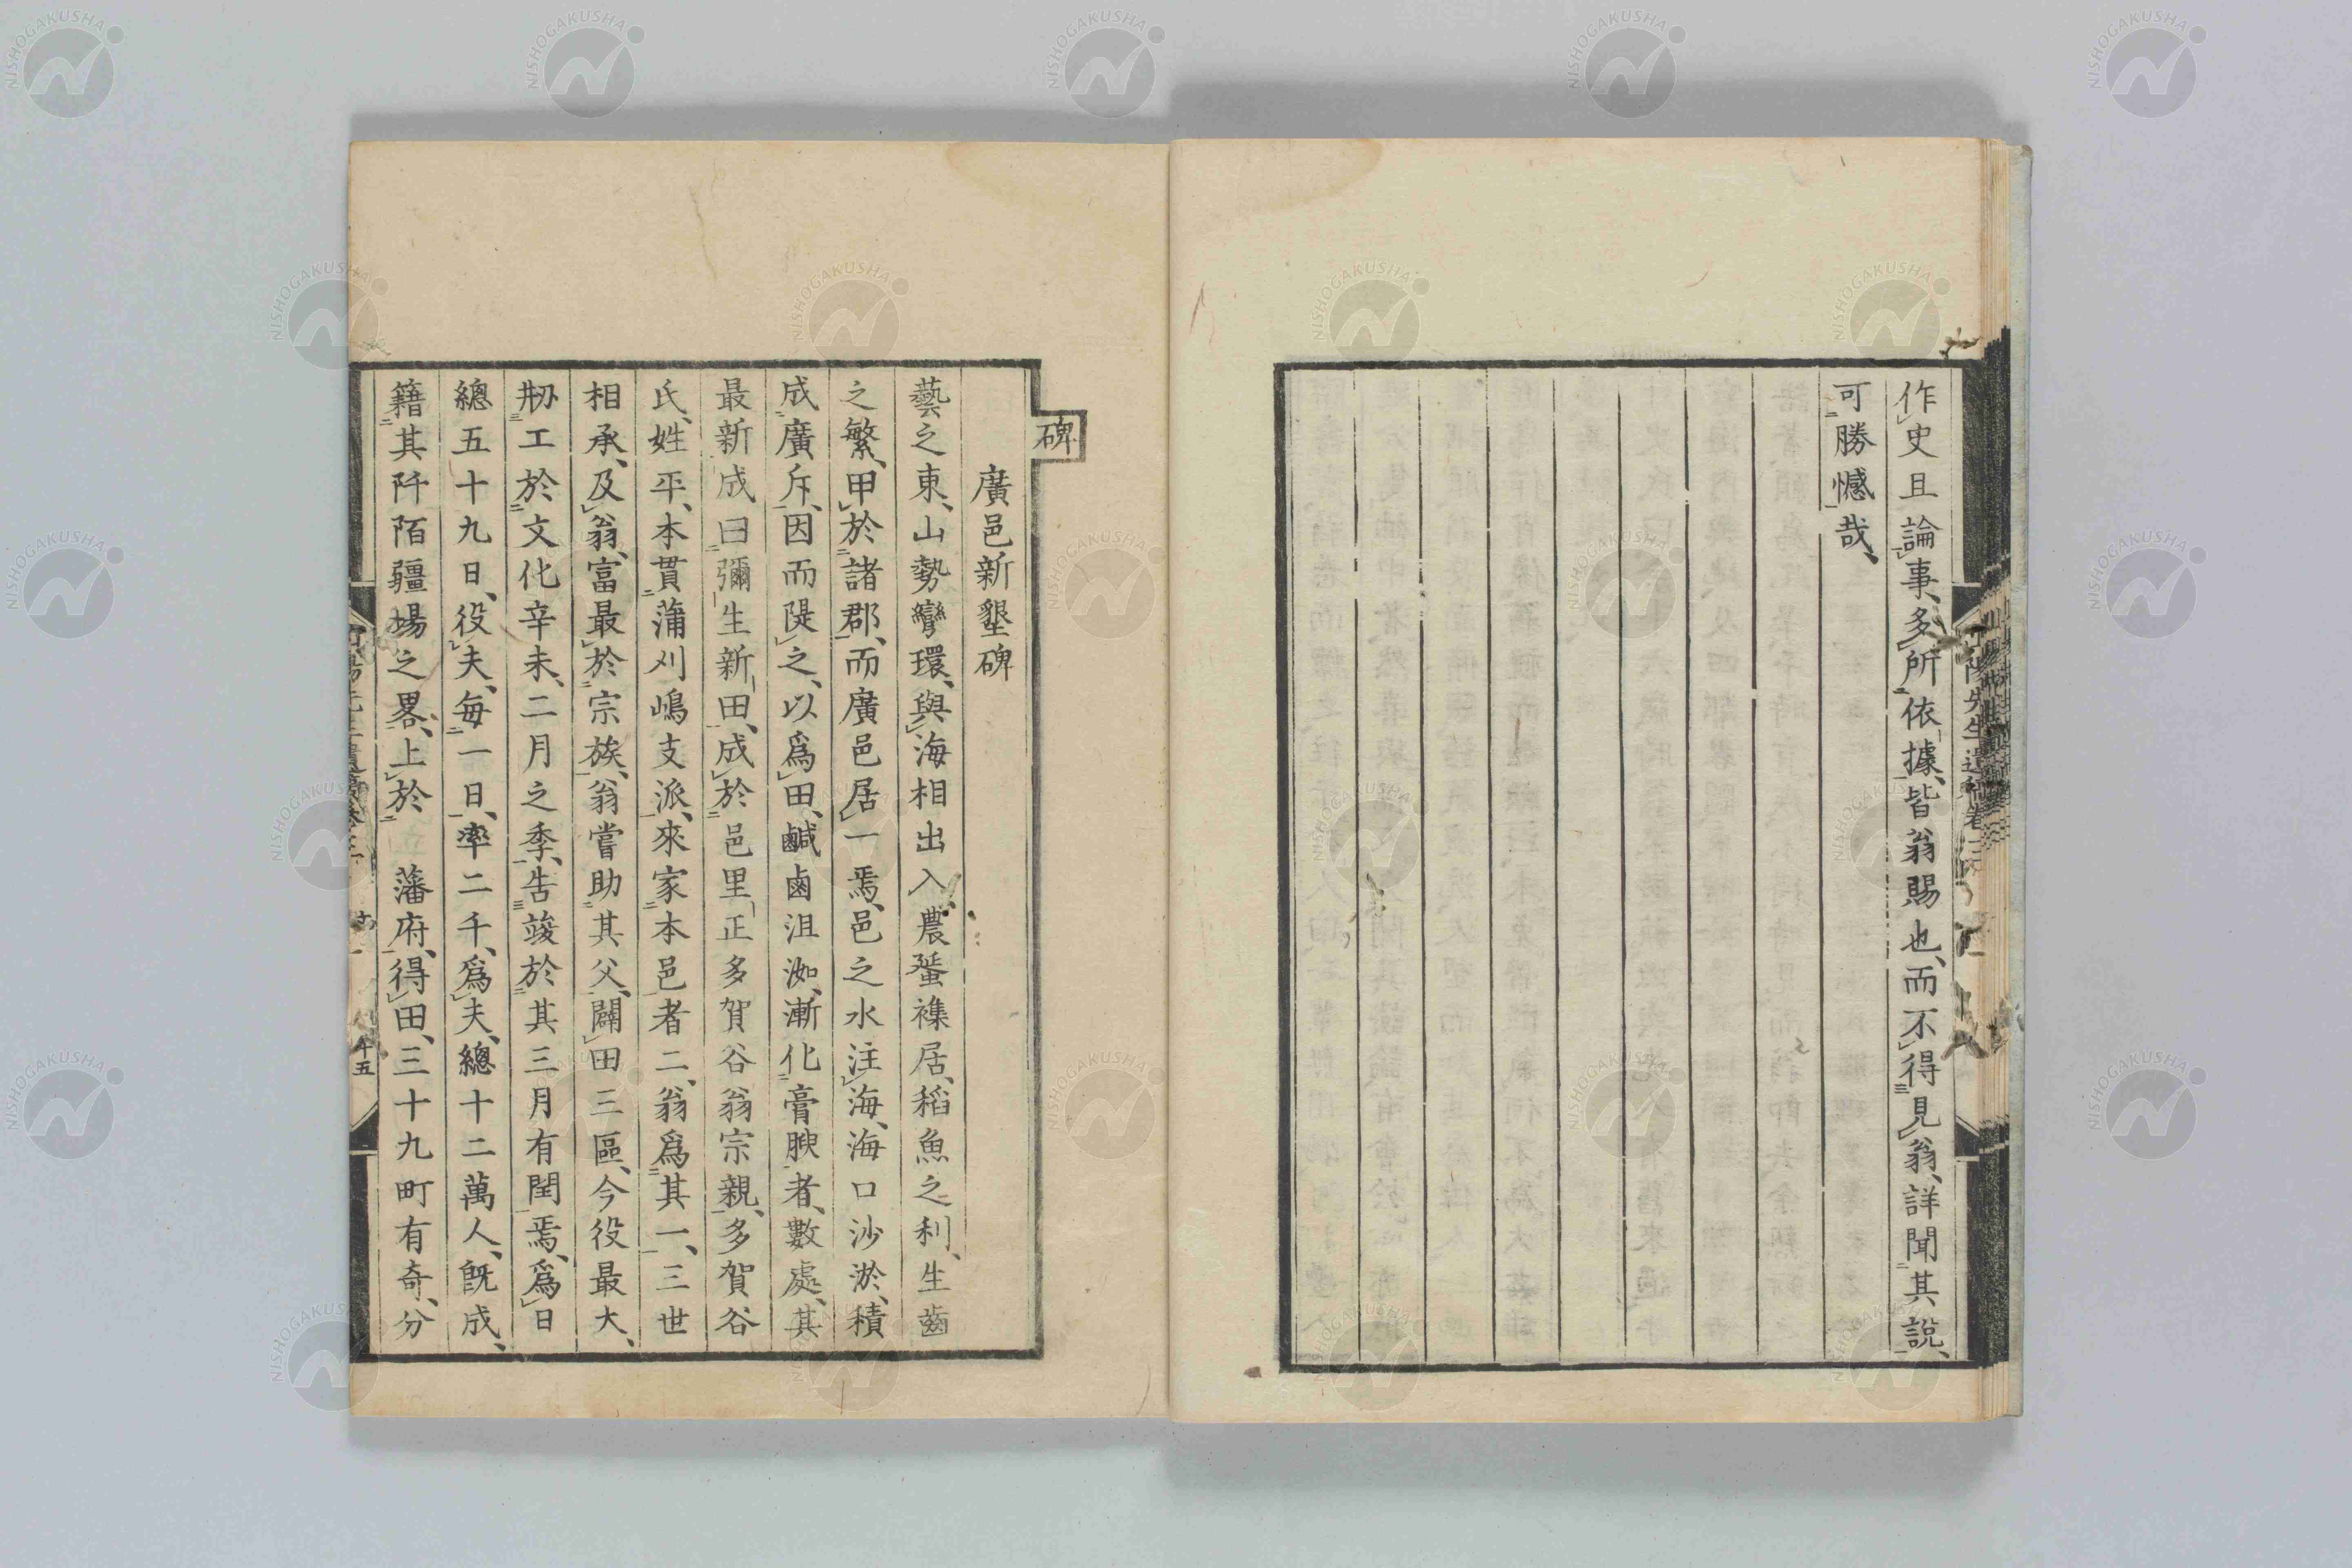 作史且論事、多所依據、皆翁賜也、而不得見翁、詳聞其說、
可勝憾哉、
碑
廣邑新墾碑
藝之東、山勢彎環、與海相出入、農蜑襍居、稻魚之利、生齒
之繁、甲於諸郡、而廣邑居一焉、邑之水注海、海口沙淤、積
成廣斥、因而隄之、以爲田、鹹鹵沮洳、漸化膏腴者、數處、其
最新成曰彌生新田、成於邑里正多賀谷翁宗親、多賀谷
氏、姓平、本貫蒲刈嶋支派、來家本邑者二、翁爲其一、三世
相承、及翁、富最於宗族、翁嘗助其父、闢田三區、今役最大、
刱工於文化辛未、二月之季、告竣於其三月有閏焉、爲日
總五十九日、役夫、每一日、率二千、爲夫、總十二萬人、旣成、
籍其阡陌疆場之畧、上於　藩府、得田、三十九町有奇、分